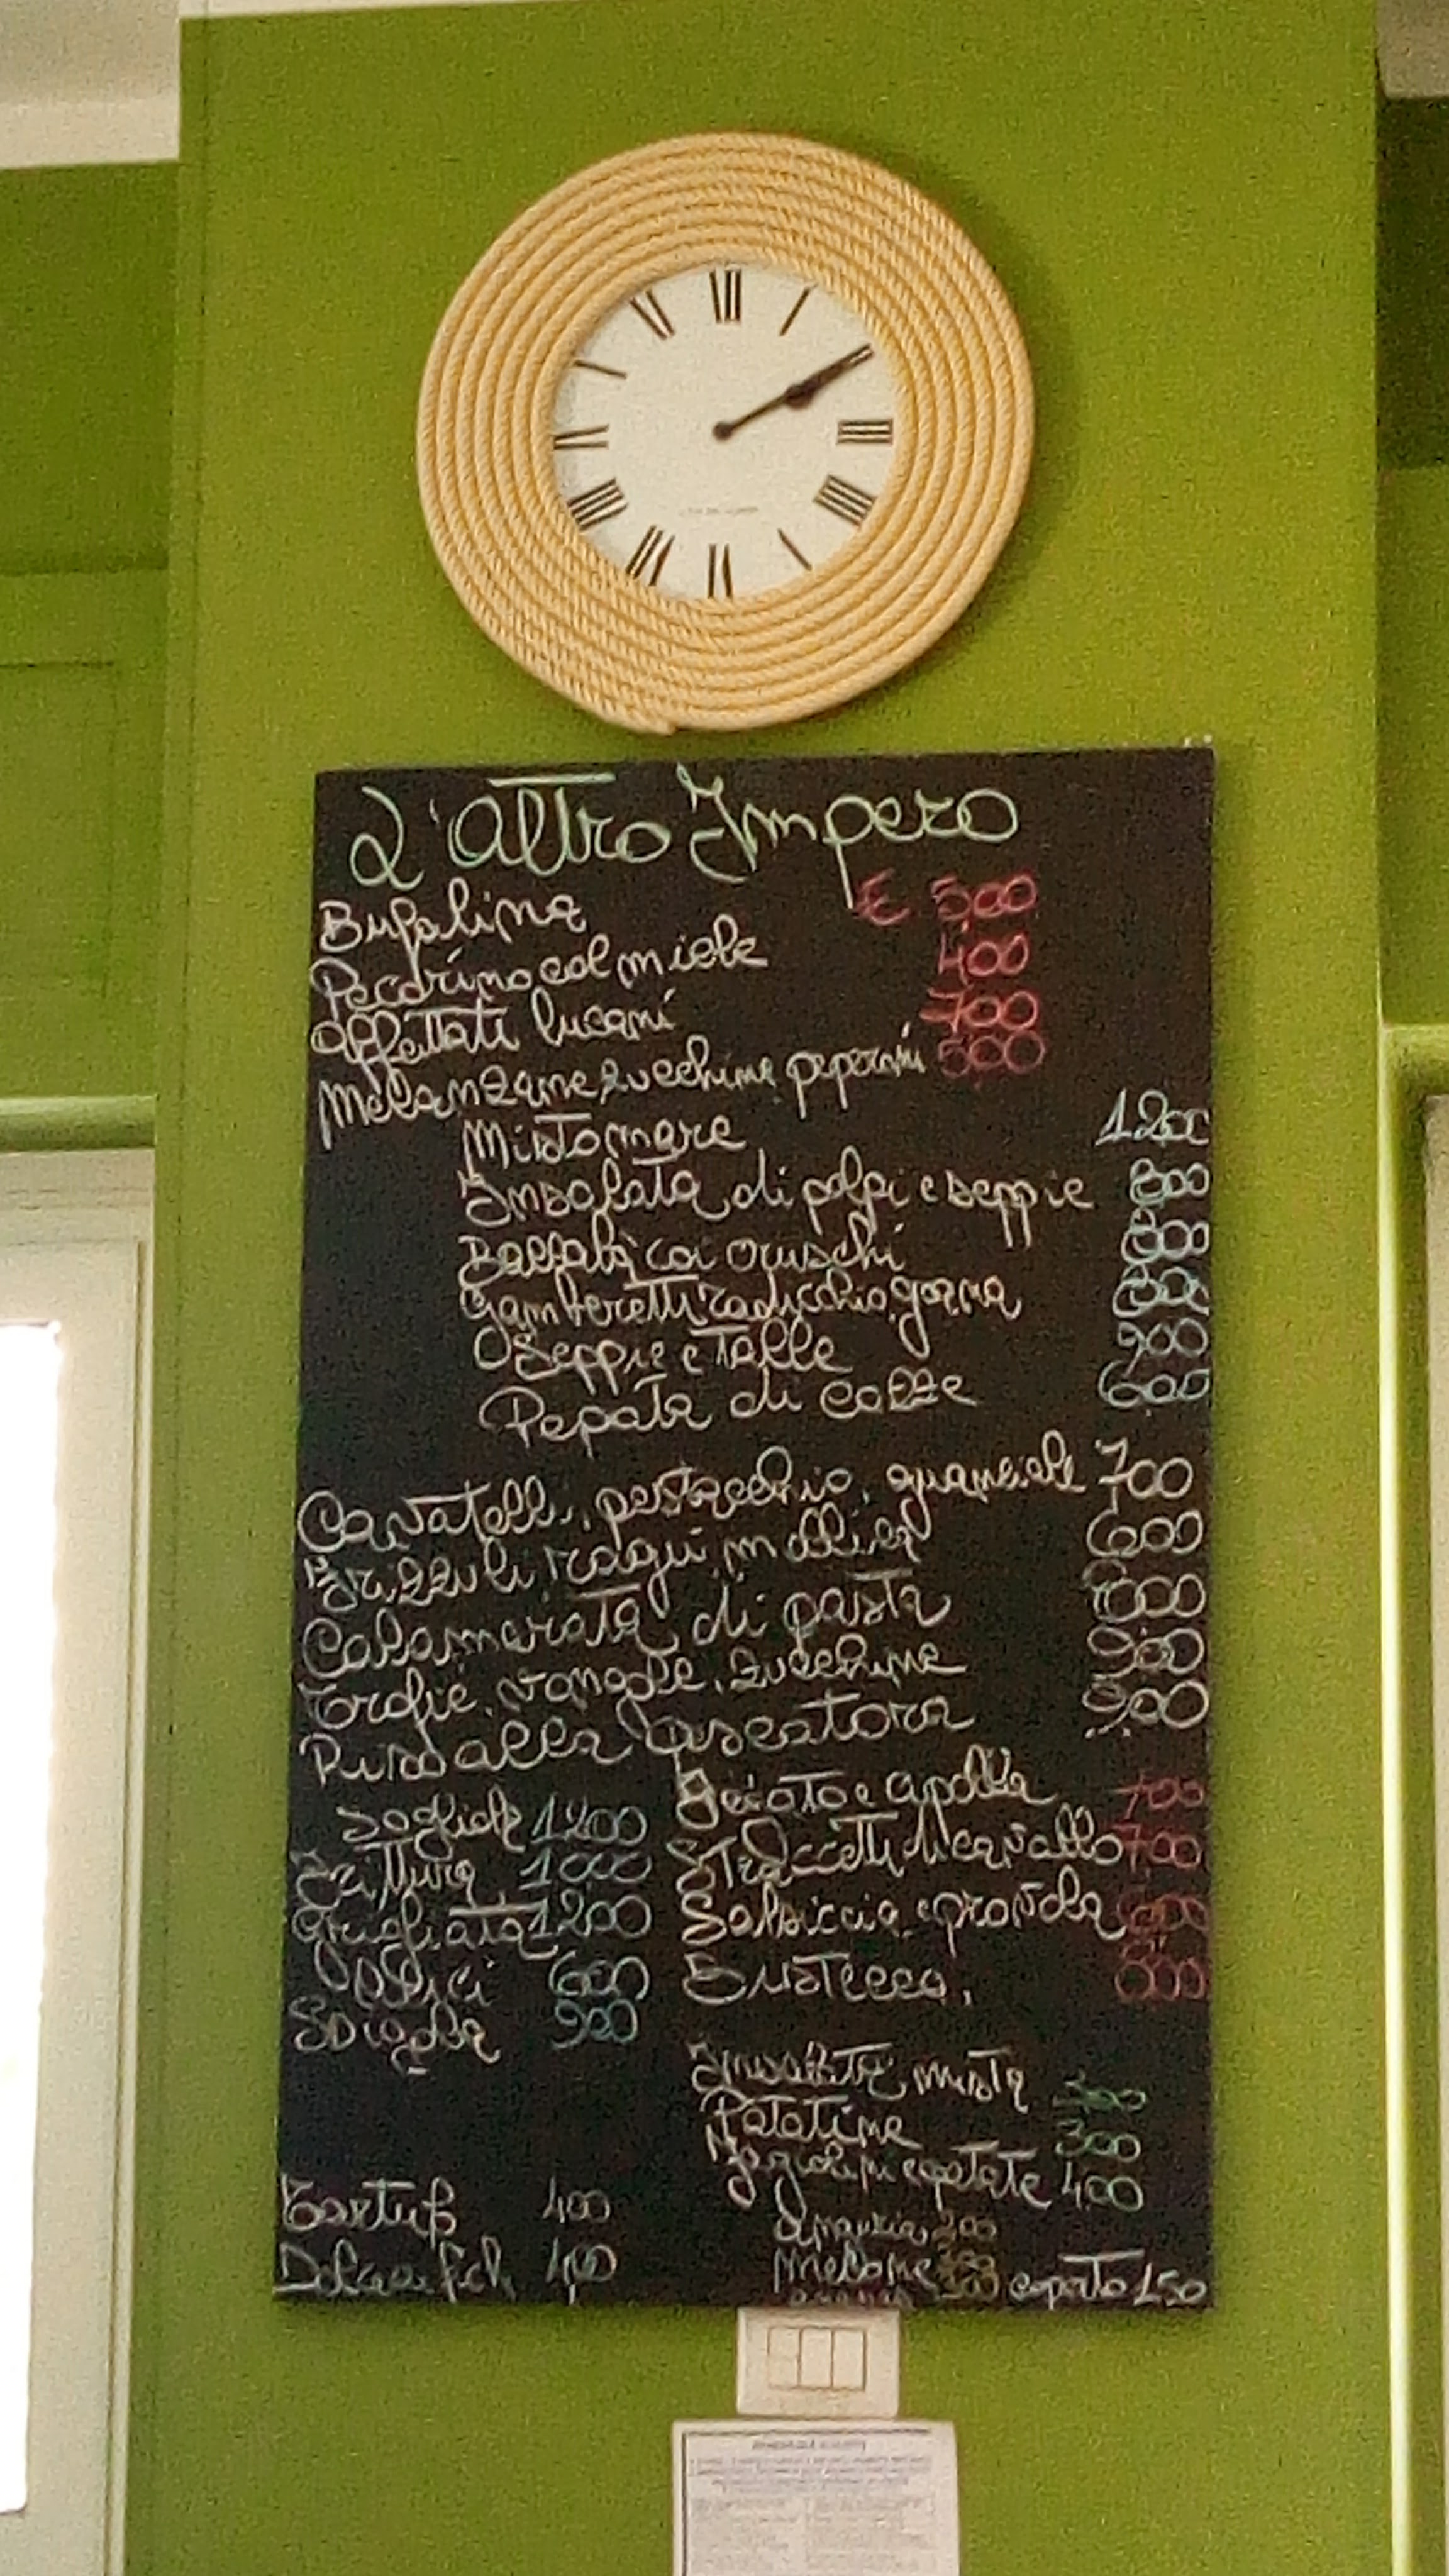 L'altro Impero
Bufalina € 5,00
Pecorino col miele 4,00
Affettati lucani 7,00
Melanzane, zucchine, peperoni 5,00
Misto mare 12,00
Insalata di polpi e seppie 8,00
Baccalà coi cruschi 8,00
Gamberetti radicchio, grana 8,00
Seppie e talle 9,00
Pepata di cozze 6,00
Cavatelli, pistacchio, guanciale 7,00
Frizzuli, ragù, mollica 6,00
Calamarata di pasta 8,00
Trofie, vongole, zucchine 9,00
Riso alla pescatora 9,00
Sogliole 12,00
Frittura 10,00
Grigliata 12,00
600
Spigola 9,00
cipolla 7,00
Straccetti di cavallo 7,00
Salsiccia e provola 6,00
Bistecca 8,00
Insalata mista 3,00
Patatine 3,00
Fagiolini e patate 4,00
Tartufo 4,00
4,00
Anguria 2,00
Melone
coperto 1,50